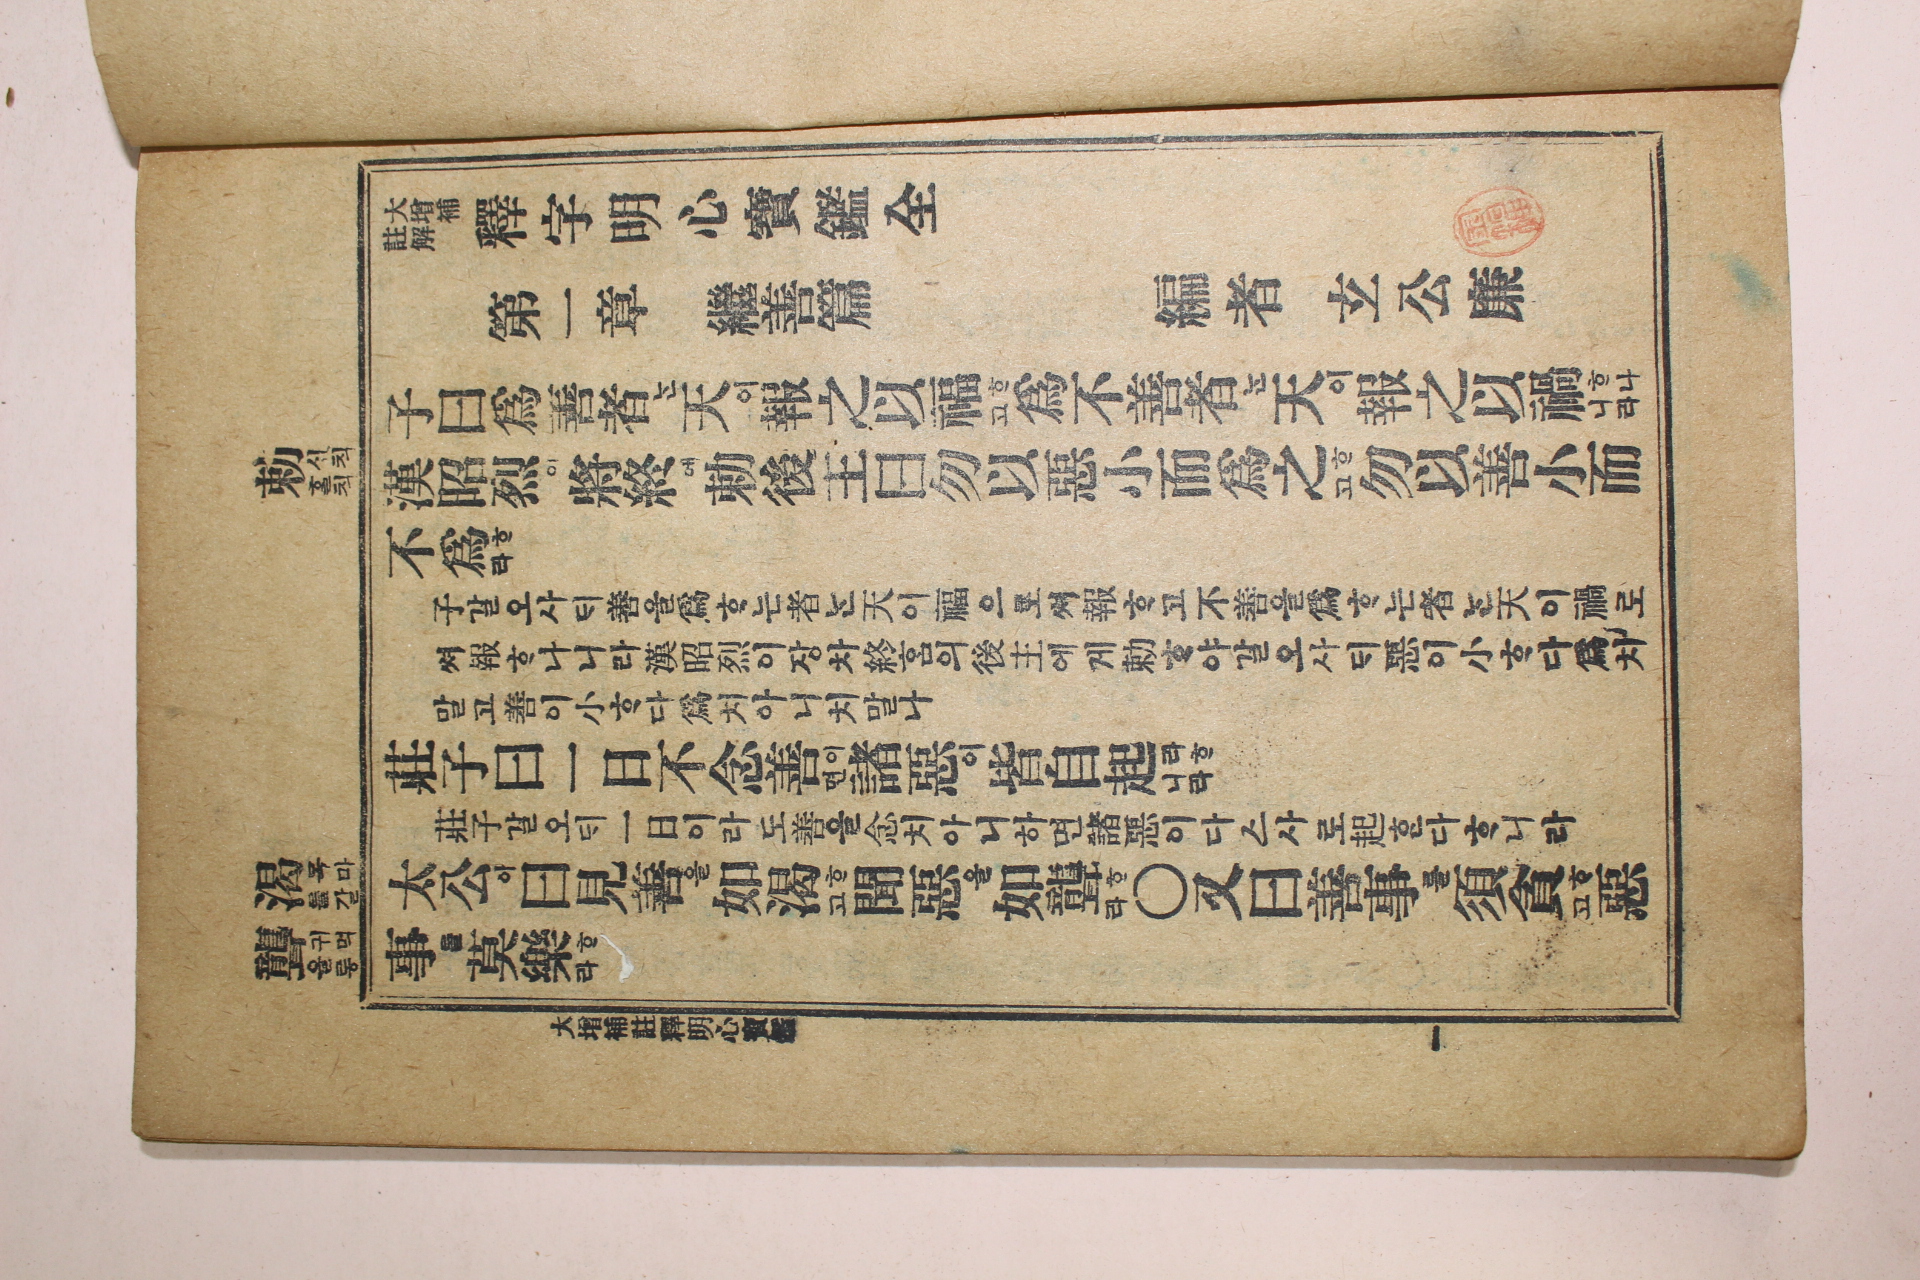 大增補註解 釋字明心寶鑑全
第一章 繼善篇 編者 立公廉
子曰爲善者ᄂᆞᆫ天이報之以福ᄒᆞ고爲不善者ᄂᆞᆫ天이報之以禍ᄒᆞ나니라
勅 신칙홀칙
漢昭烈이將終에勅後主曰勿以惡小而爲之ᄒᆞ고勿以善小而
不爲ᄒᆞ라
子갈오사ᄃᆡ善을爲ᄒᆞ는者ᄂᆞᆫ天이福으로ᄡᅥ報ᄒᆞ고不善을爲ᄒᆞ는者ᄂᆞᆫ天이禍로
ᄡᅥ報ᄒᆞ나니라漢昭烈이장차終홈의後主에게勅ᄒᆞ야갈오사ᄃᆡ惡이小ᄒᆞ다爲치
말고善이小ᄒᆞ다爲치아니치말나
莊子曰一日不念善이면諸惡이皆自起라ᄒᆞ니라
莊子갈오ᄃᆡ一日이라도善을念치아니하면諸惡이다스사로起한다ᄒᆞ니라
渴 목마를갈
太公이曰見善을如渴ᄒᆞ고聞惡을如聾ᄒᆞ라〇又曰善事를須貪ᄒᆞ고惡
聾 귀먹을롱
事를莫樂ᄒᆞ라
大增補註釋明心寶鑑
一